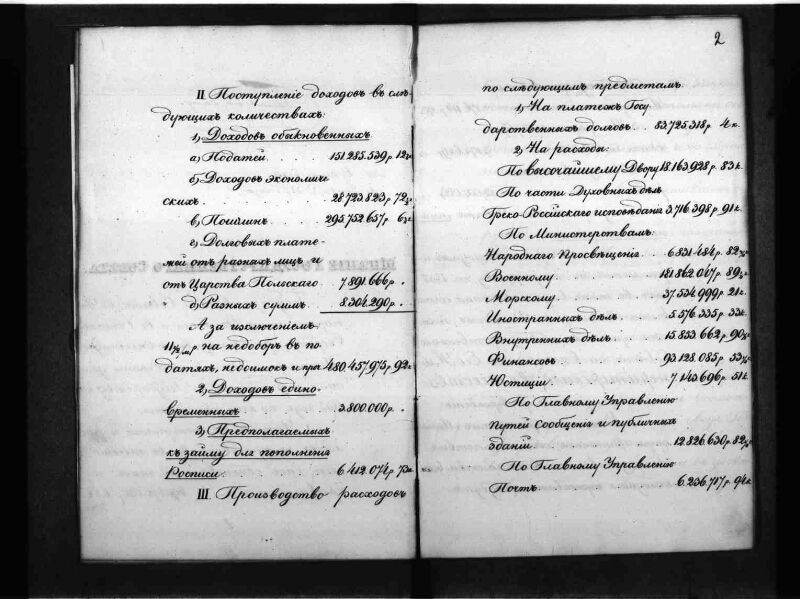 II. Поступленіе доходовъ въ слѣ
дующихъ количествахъ:
1) Доходовъ обыкновенныхъ
а) Податей . . . 151.285.539 р. 12
б) Доходовъ экономиче
скихъ . . . 28.723.823 р. 72
в) Пошлинъ . . . 295.752.657 р. 6
г) Долговыхъ плате-
жей отъ разныхъ лицъ и
отъ Царства Польскаго 7.891.666 р.
д) Разныхъ суммъ . 8.304.290 р. .
А за исключеніемъ
на недоборъ въ по
датяхъ, недоимокъ и проч. 480.457.975 р. 92
2) Доходовъ едино-
временныхъ . . . 3.800.000 р. .
3) Предполагаемыхъ
къ займу для пополненія
Росписи . . . 6.412.074 р. 73
III. Производство расходовъ
2
по слѣдующимъ предметамъ:
1) На платежъ Госу
дарственныхъ долговъ . 83.725.318 р. 4 к.
2) На расходы:
По Высочайшему Двору 18.163.928 р. 83 к.
По части Духовныхъ дѣлъ
Греко-Россійскаго исповѣданія 3.716.398 р. 91 к.
По Министерствамъ:
Народнаго Просвѣщенія . 6.831.484 р. 82
Военному . . . 181.862.047 р. 89
Морскому . . . 37.534.999 р. 21 к.
Иностранныхъ дѣлъ . 5.576.335 р. 33 к.
Внутреннихъ дѣлъ . 15.853.662 р. 90
Финансовъ . . . 93.128.085 р. 33
Юстиціи . . . 7.143.696 р. 51 к.
По Главному Управленію
Путей Сообщенія и публичныхъ
зданій . . . 12.826.630 р. 82
По Главному Управленію
Почтъ . . . 6.236.717 р. 94 к.